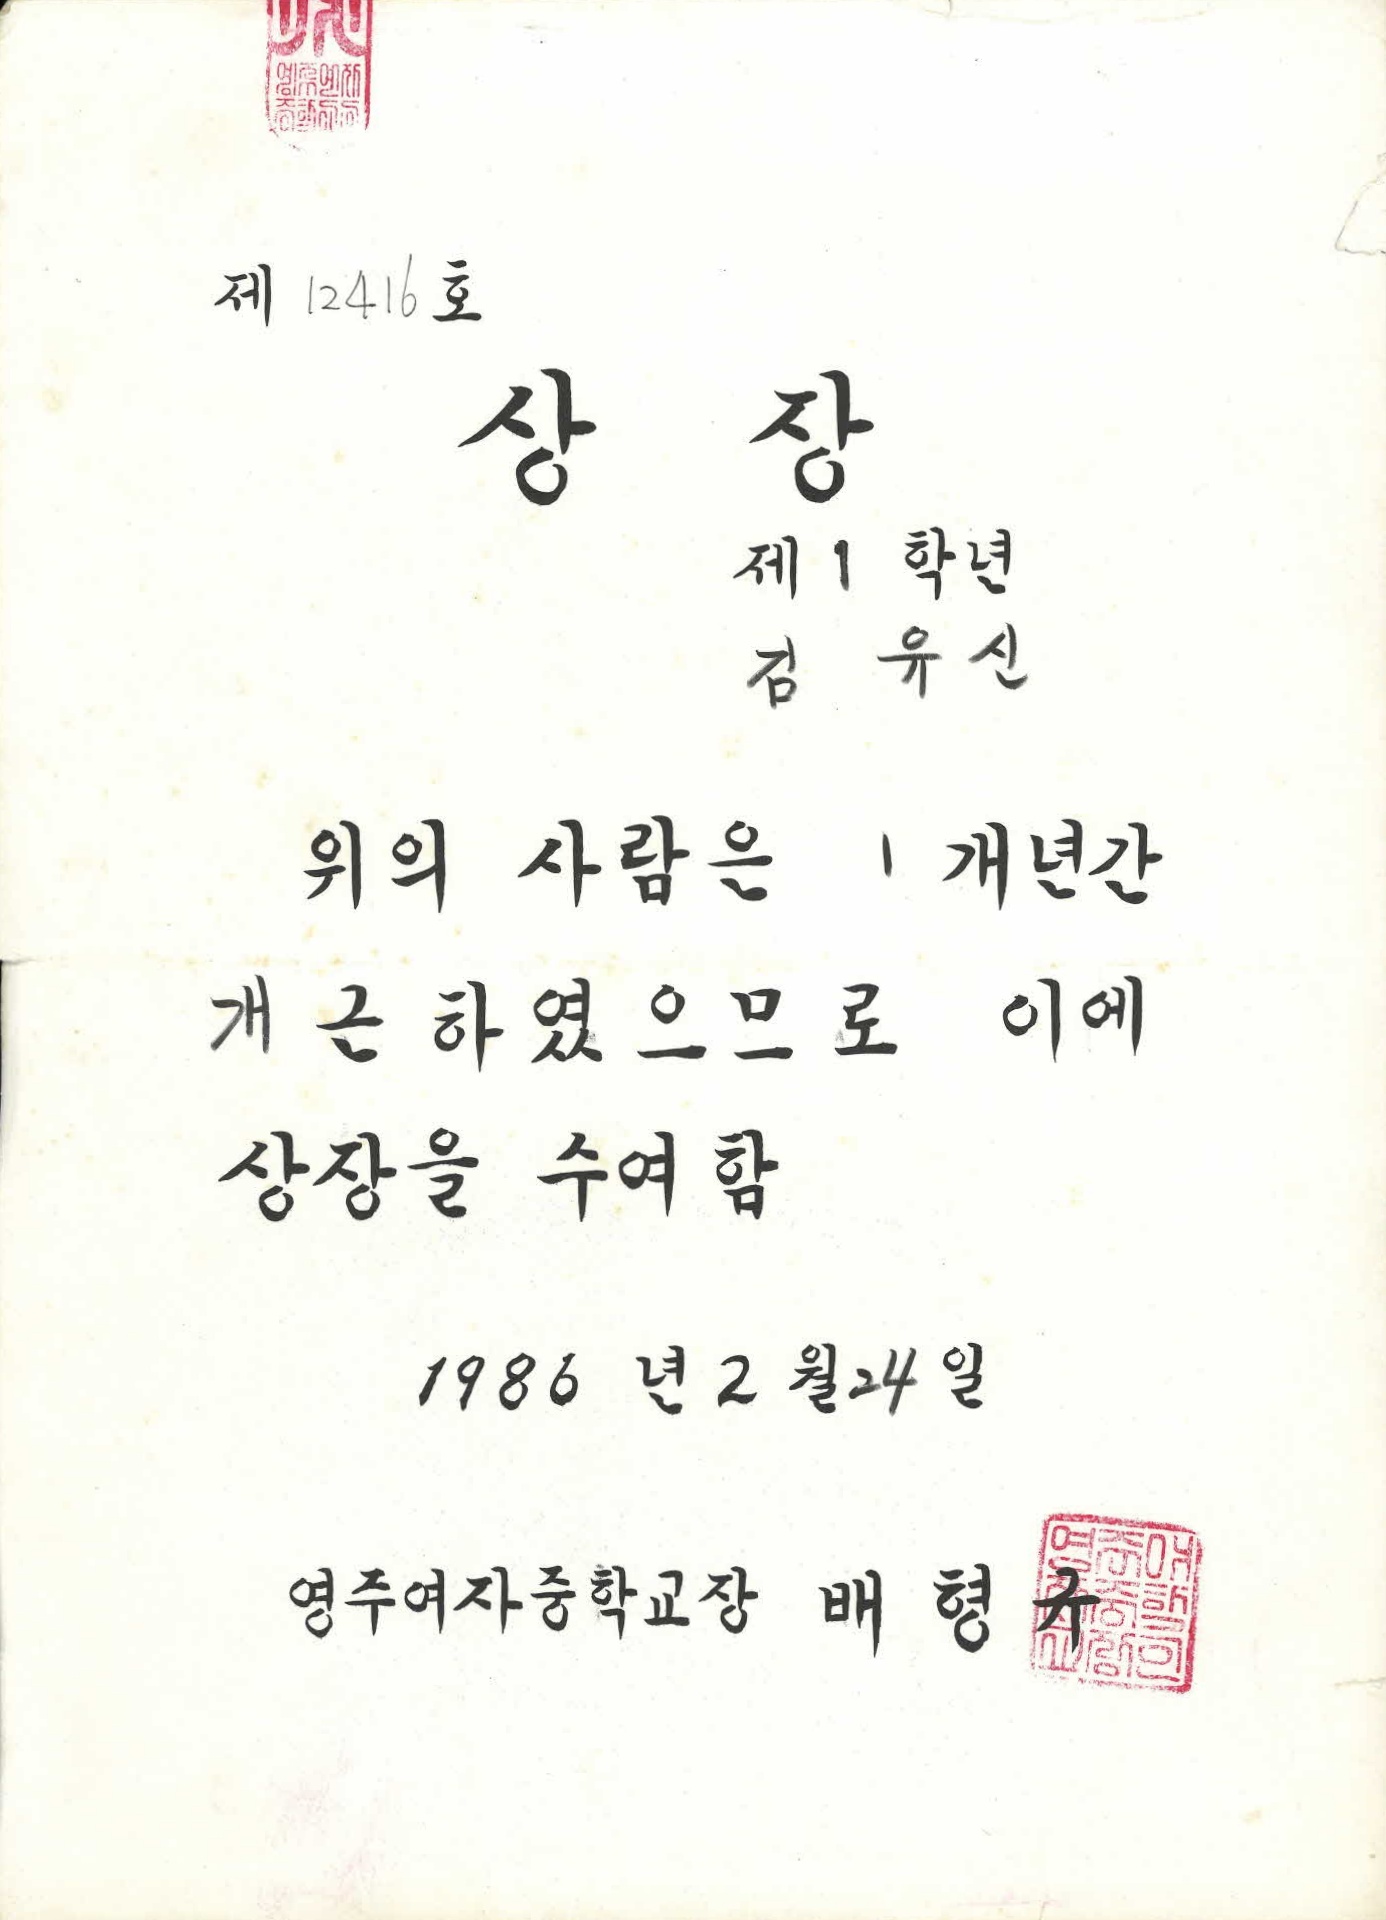 제 12416 호
상 장
제 1 학년
김 유신
위의 사람은 1 개년간
개근하였으므로 이에
상장을 수여함
1986 년 2 월 24 일
영주여자중학교장 배 형 규